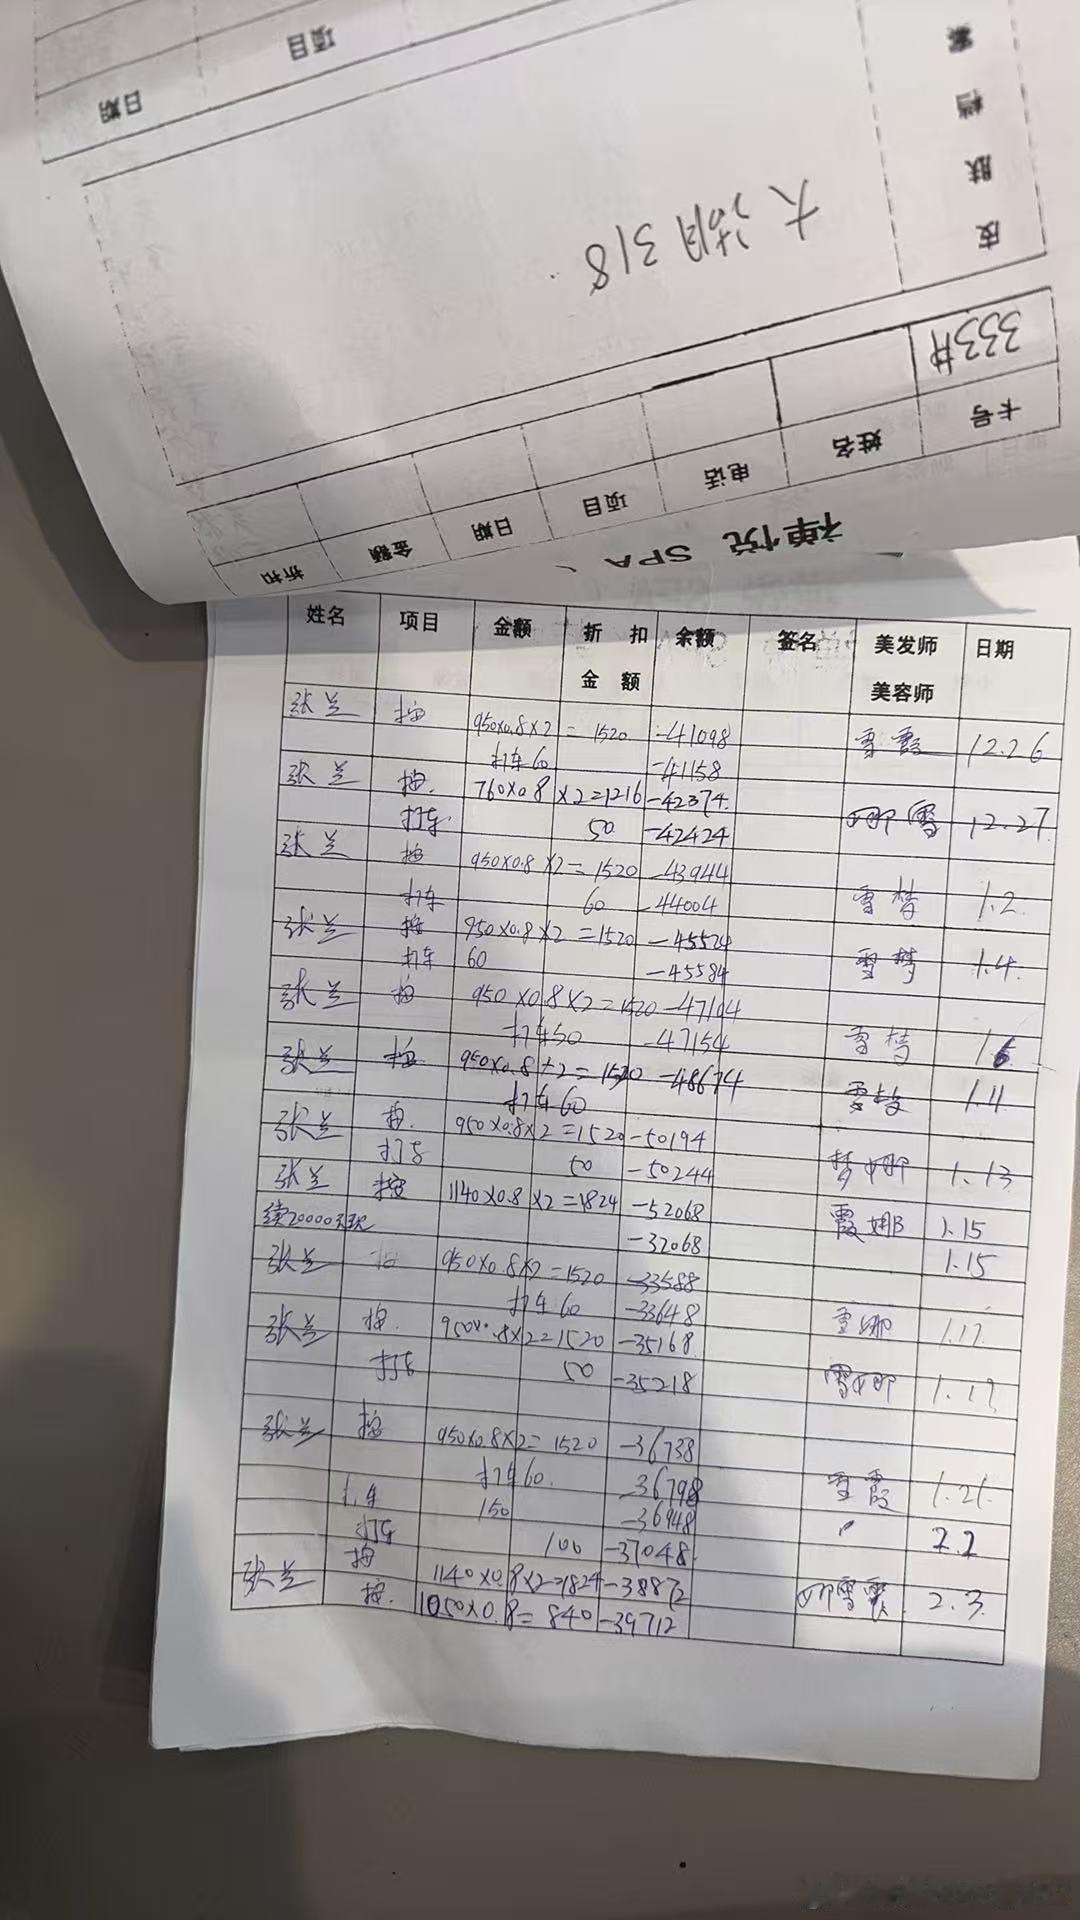 日期 项目
皮肤档案
大湖318
333#
卡号 姓名 电话 项目 日期 金额 折扣
禅悦 SPA
姓名 项目 金额 折扣金额 余额 签名 美发师美容师 日期
张兰 按 950×0.8×2 = 1520 -41098 雪霞 12.26
打车60 -41158
张兰 按. 760×0.8×2=1216 -42374. 娜雪 12.27
打车. 50 -42424
张兰 按 950×0.8×2=1520 -43944
打车 60 -44004 雪梦 1.2
张兰 按 950×0.8×2=1520 -45524
打车 60 -45584 雪梦 1.4.
张兰 按 950×0.8×2=1520 -47104
打车50 -47154 雪梦 1.6
张兰 按 950×0.8×2=1520 -48674 1.11
打车60
张兰 按. 950×0.8×2=1520 -50194
打车 50 -50244 梦娜 1.13
张兰 按 1140×0.8×2=1824 -52068 霞娜 1.15
续20000 -32068 1.15
张兰 按 950×0.8×2=1520 -33588
打车60 -33648 雪娜 1.17
张兰 按. 950×.8×2=1520 -35168
打车 50 -35218 雪娜 1.19
张兰 按 950×0.8×2=1520 -36738
打车60. -36798 雪霞 1.21.
150 -36948 2.2
打车 100 -37048.
张兰 按 1140×0.8×2=1824 -38872 娜雪霞. 2.3.
按. 1050×0.8=840 -39712